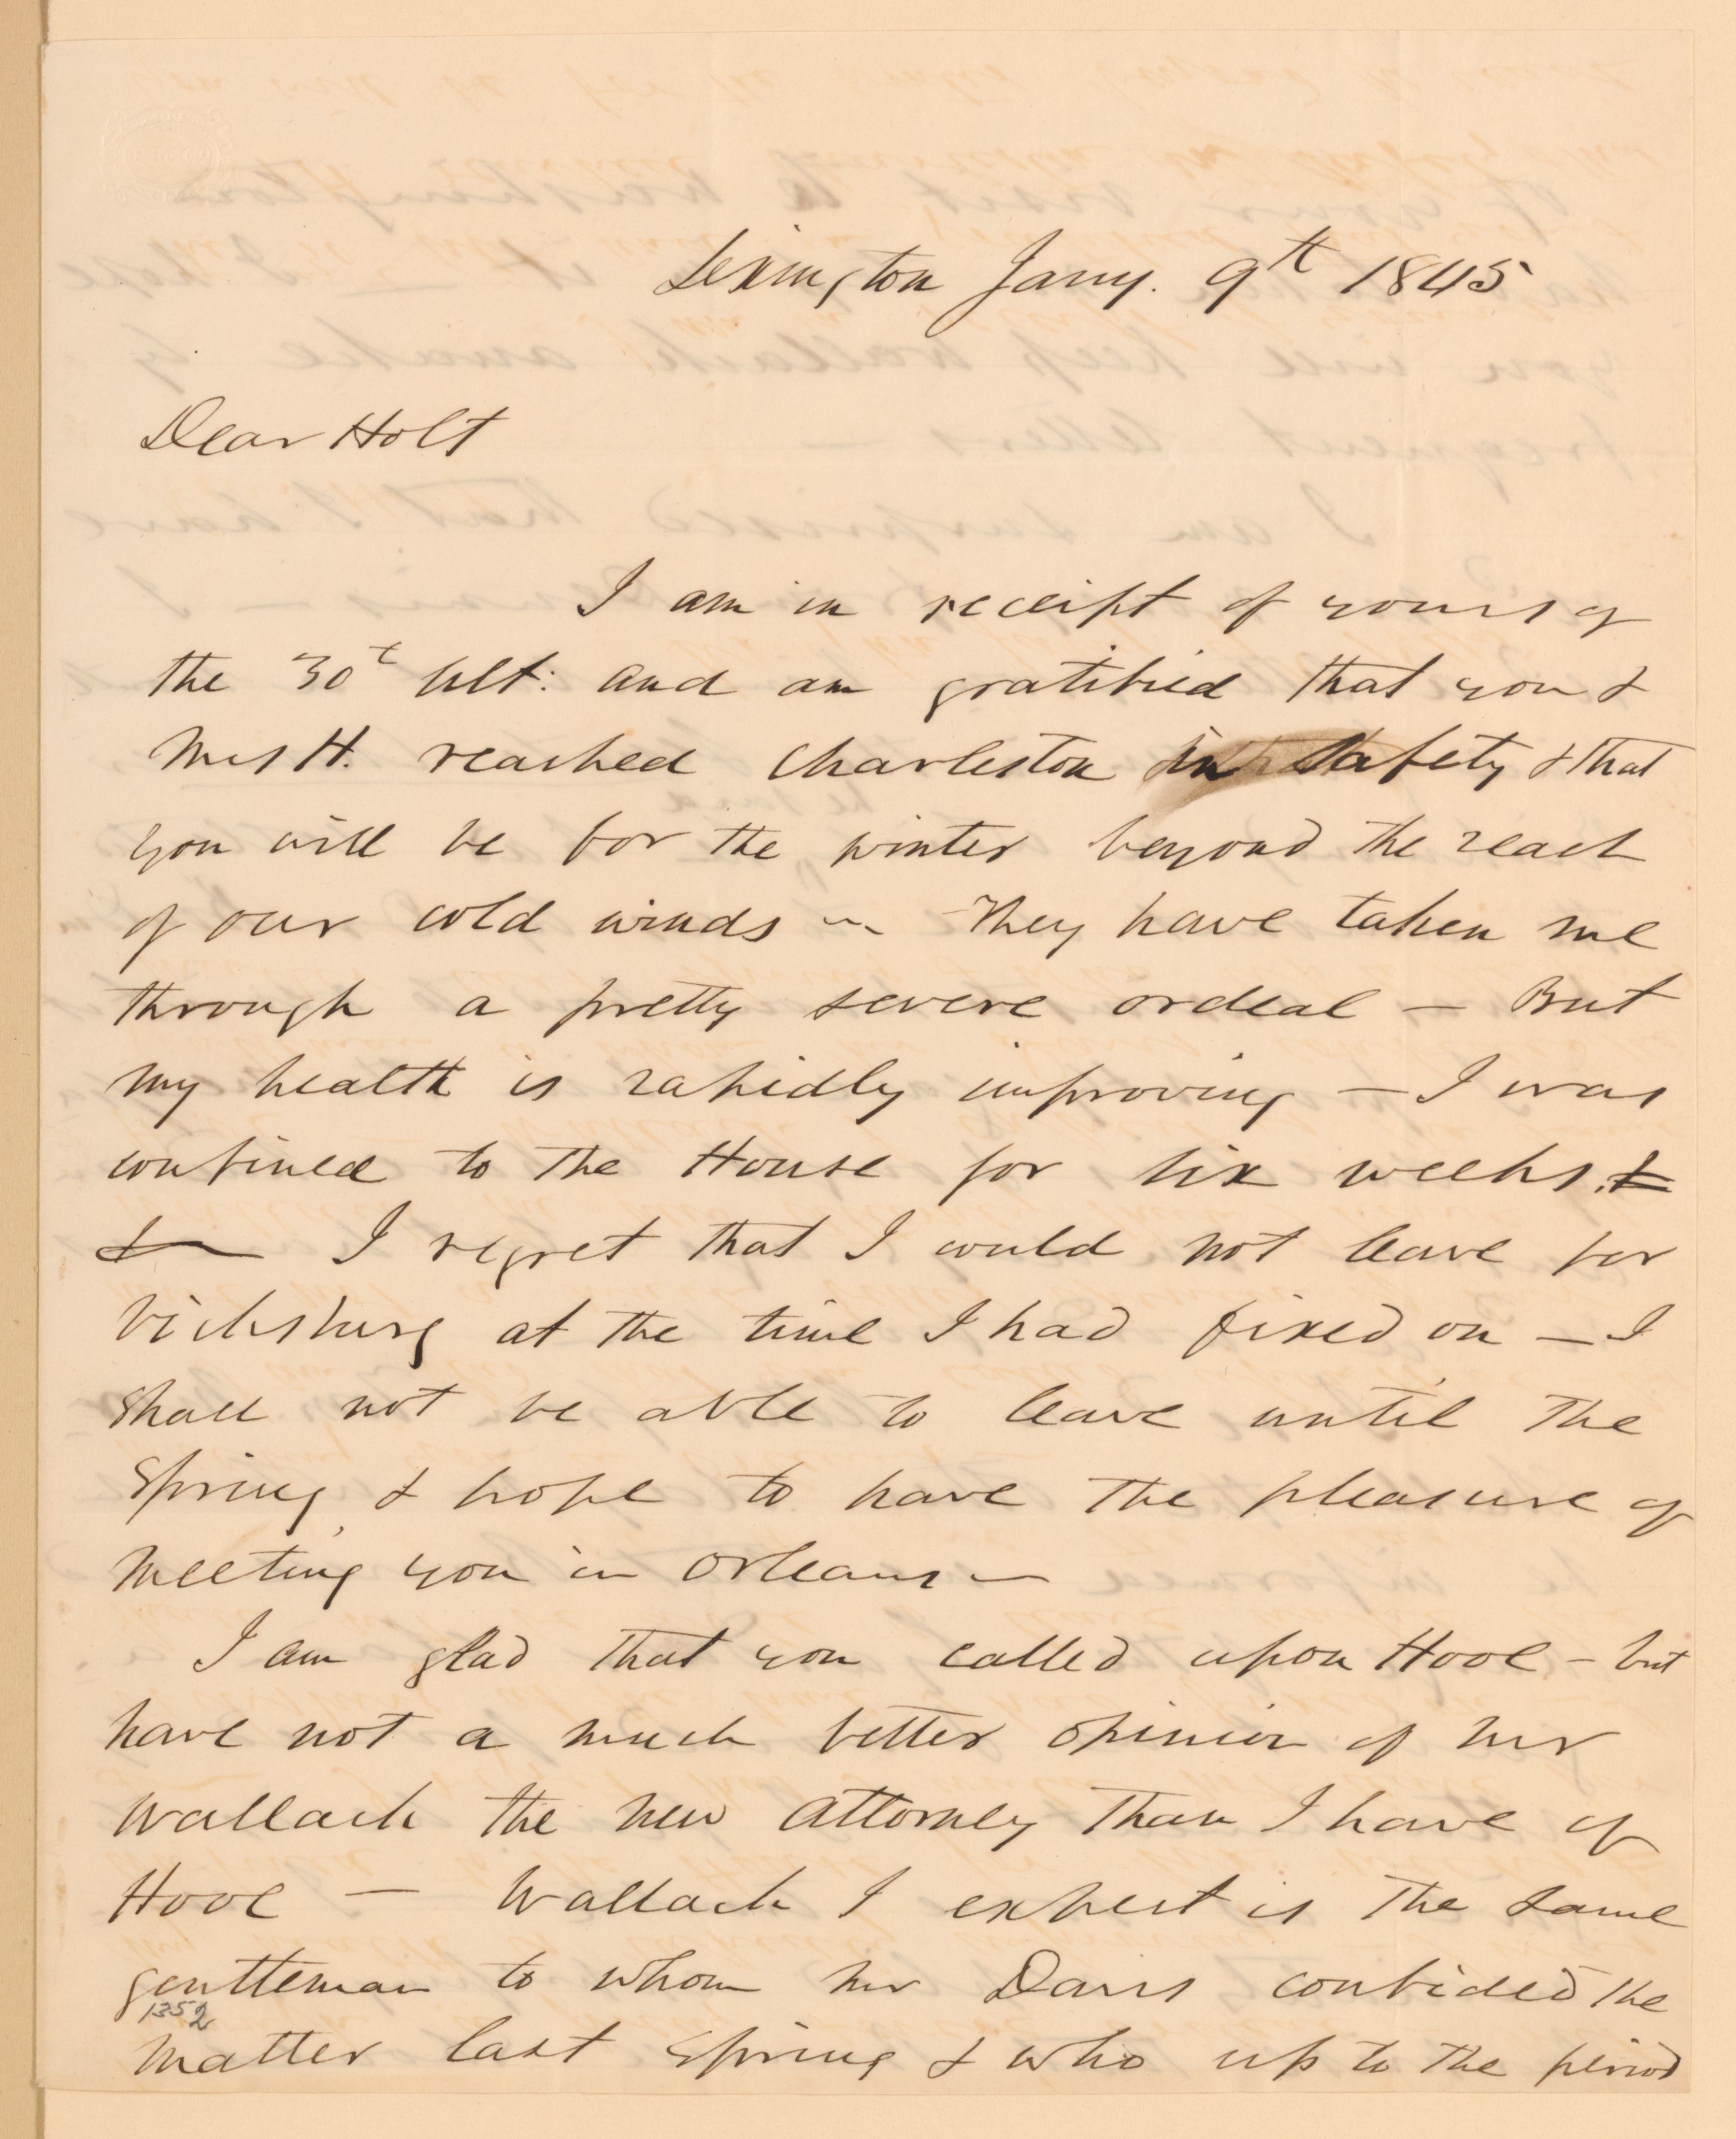 Lexington Jany. 9th 1845
Dear Holt
I am in receipt of yours of
the 30t Ult: and am gratified that you &
Mrs H. reached Charleston in safety & that
you will be for the winter beyond the reach
of our cold winds — They have taken me
through a pretty severe ordeal — But
my health is rapidly improving — I was
confined to the House for six weeks. &
& — I regret that I could not leave for
Vicksburg at the time I had fixed on — I
shall not be able to leave until the
Spring, & hope to have the pleasure of
meeting you in Orleans —
I am glad that you called upon Hoole - but
have not a much better opinion of Mr
Wallach the new attorney than I have of
Hoole — Wallach I expect is the same
gentleman to whom Mr Davis confided the
1352
matter last Spring & who up to the period